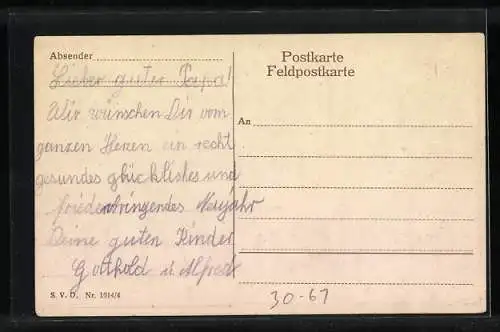 Absender
Lieber guter Papa!
Wir wünschen Dir vom
ganzen Herzen ein recht
gesundes glückliches und
friedenbringendes Neujahr
Deine guten Kinder
Gotthold u. Alfred
S. V. D. Nr. 1014/4
Postkarte
Feldpostkarte
An
30-67